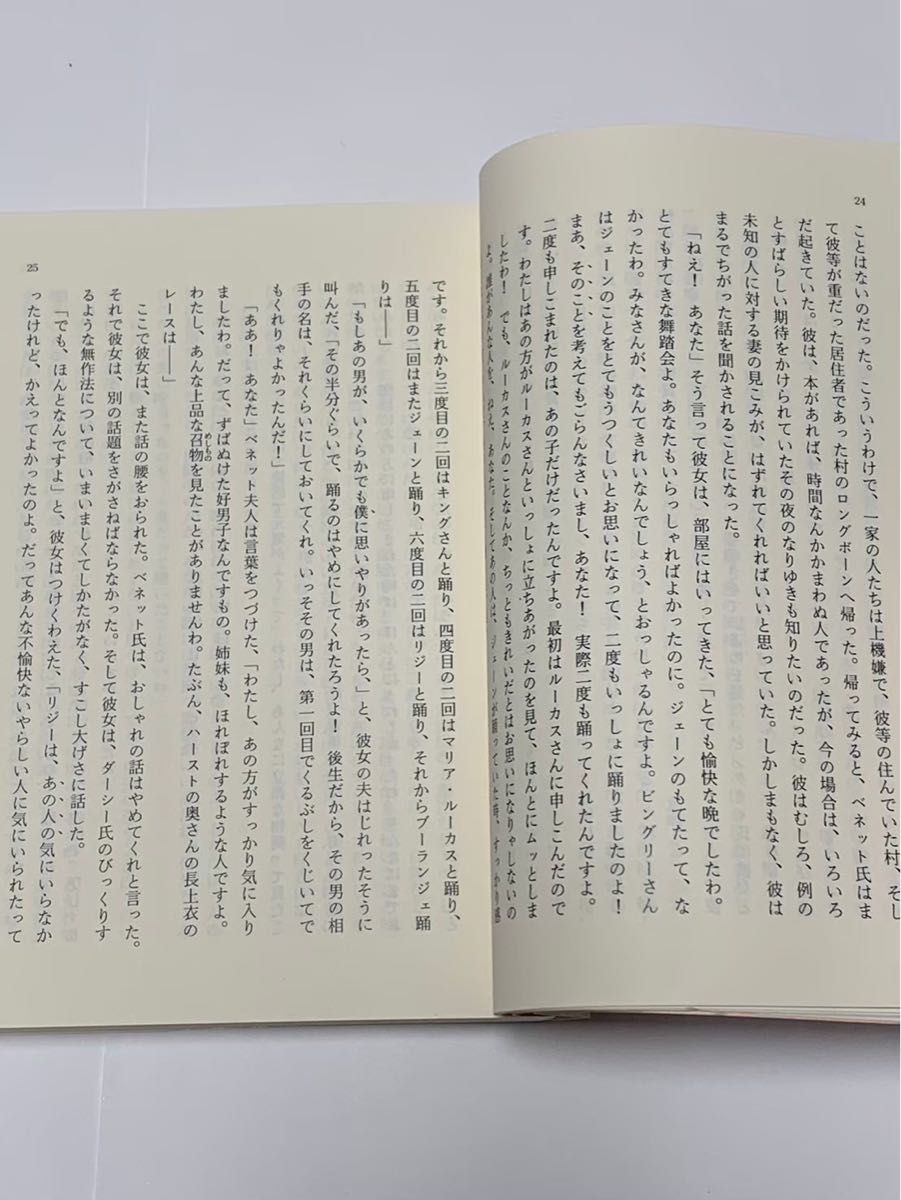 24
ことはないのだった。こういうわけで、一家の人たちは上機嫌で、彼等の住んでいた村、そし
て彼等が重だった居住者であった村のロングボーンへ帰った。帰ってみると、ベネット氏はま
だ起きていた。彼は、本があれば、時間なんかかまわぬ人であったが、今の場合は、いろいろ
とすばらしい期待をかけられていたその夜のなりゆきも知りたいのだった。彼はむしろ、例の
未知の人に対する妻の見こみが、はずれてくれればいいと思っていた。しかしまもなく、彼は
まるでちがった話を聞かされることになった。
「ねえ！　あなた」そう言って彼女は、部屋にはいってきた、「とても愉快な晩でしたわ。
とてもすてきな舞踏会よ。あなたもいらっしゃればよかったのに。ジェーンのもてたって、な
かったわ。みなさんが、なんてきれいなんでしょう、とおっしゃるんですよ。ビングリーさん
はジェーンのことをとてもうつくしいとお思いになって、二度もいっしょに踊りましたのよ！
まあ、そのことを考えてもごらんなさいまし、あなた！　実際二度も踊ってくれたんですよ。
二度も申しこまれたのは、あの子だけだったんですよ。最初はルーカスさんに申しこんだので
す。わたしはあの方がルーカスさんといっしょに立ちあがったのを見て、ほんとにムッとしま
したわ！　でも、ルーカスさんのことなんか、ちっともきれいだとはお思いになりゃしないの
よ。誰があんな人を、ねえ、あなた。そしてあの人は、ジェーンが踊っていた時、すっかり感
25
です。それから三度目の二回はキングさんと踊り、四度目の二回はマリア・ルーカスと踊り、
五度目の二回はまたジェーンと踊り、六度目の二回はリジーと踊り、それからブーランジェ踊
りは――」
「もしあの男が、いくらかでも僕に思いやりがあったら、」と、彼女の夫はじれったそうに
叫んだ、「その半分ぐらいで、踊るのはやめにしてくれたろうよ！　後生だから、その男の相
手の名は、それくらいにしておいてくれ。いっその男は、第一回目でくるぶしをくじいてで
もくれりゃよかったんだ！」
「ああ！　あなた」ベネット夫人は言葉をつづけた、「わたし、あの方がすっかり気に入り
ましたわ。だって、ずばぬけた好男子なんですもの。姉妹も、ほれぼれするような人ですよ。
わたし、あんな上品な召物めしものを見たことがありませんわ。たぶん、ハーストの奥さんの長上衣の
レースは――」
ここで彼女は、また話の腰をおられた。ベネット氏は、おしゃれの話はやめてくれと言った。
それで彼女は、別の話題をさがさねばならなかった。そして彼女は、ダーシー氏のびっくりす
るような無作法について、いまいましくてしかたがなく、すこし大げさに話した。
「でも、ほんとなんですよ」と、彼女はつけくわえた、「リジーは、あの人の気にいらなか
ったけれど、かえってよかったのよ。だってあんな不愉快ないやらしい人に気にいられたって